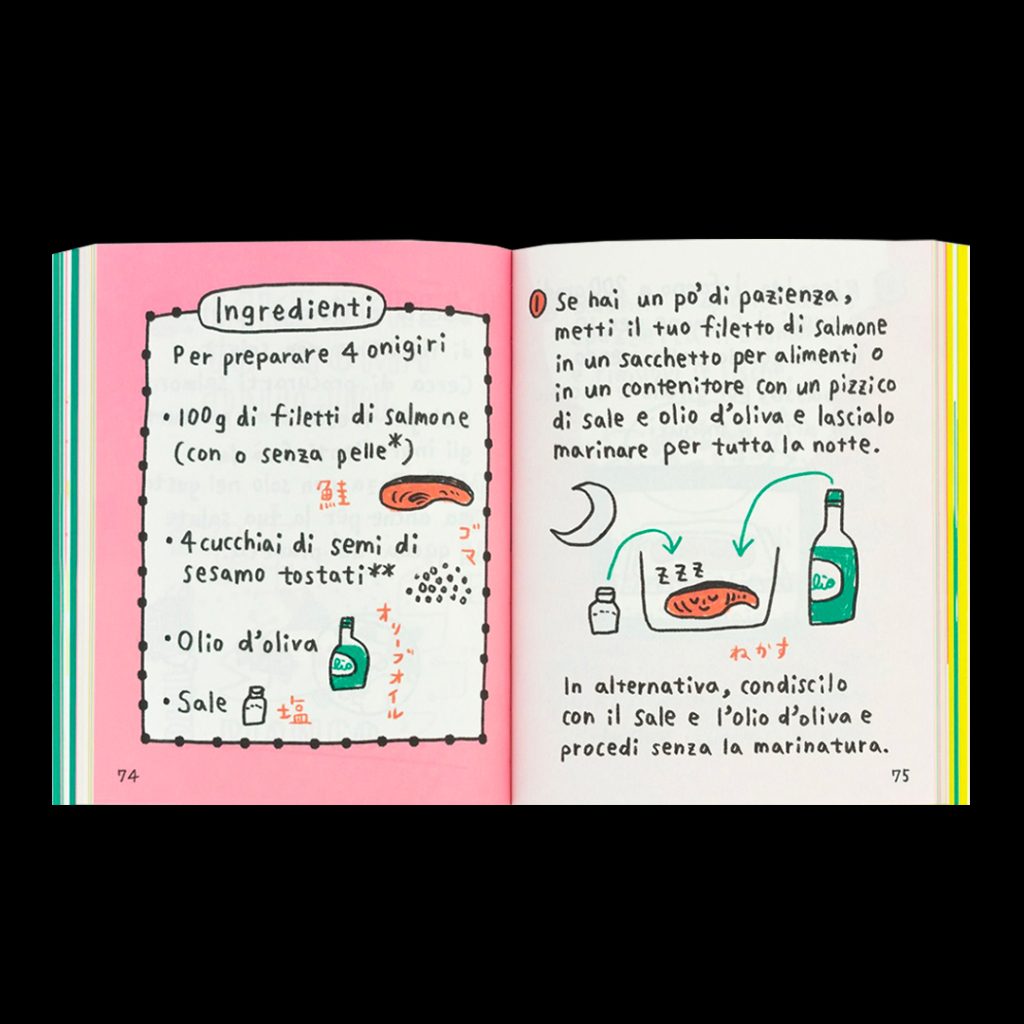 Ingredienti
Per preparare 4 onigiri
• 100g di filetti di salmone
(con o senza pelle*)
鮭
• 4 cucchiai di semi di
sesamo tostati**
ゴマ
• Olio d'oliva
olio
オリーブオイル
• Sale
塩
74
1 Se hai un po' di pazienza,
metti il tuo filetto di salmone
in un sacchetto per alimenti o
in un contenitore con un pizzico
di sale e olio d'oliva e lascialo
marinare per tutta la notte.
z z z
olio
ねかす
In alternativa, condiscilo
con il sale e l'olio d'oliva e
procedi senza la marinatura.
75